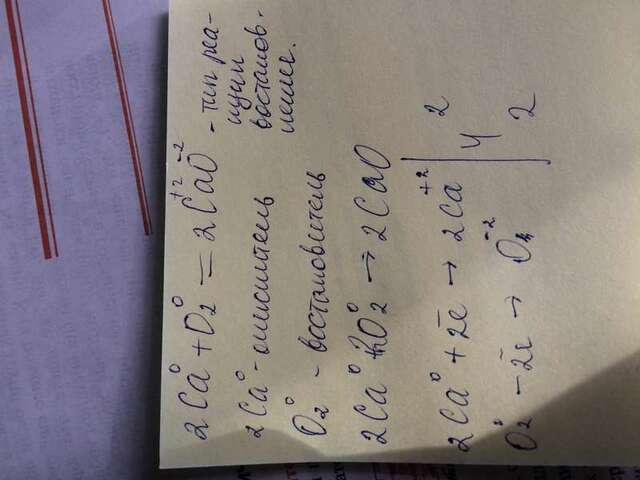 2Ca⁰ + O₂⁰ = 2Ca⁺²O⁻² - тип реа-
кции
восстанов-
ление.
2Ca⁰ - окислитель
O₂⁰ - восстановитель
2Ca⁰ + O₂⁰ → 2CaO
2Ca⁰ + 2ē → 2Ca⁺² | 4 | 2
O₂⁰ - 2ē → O⁻² | 2